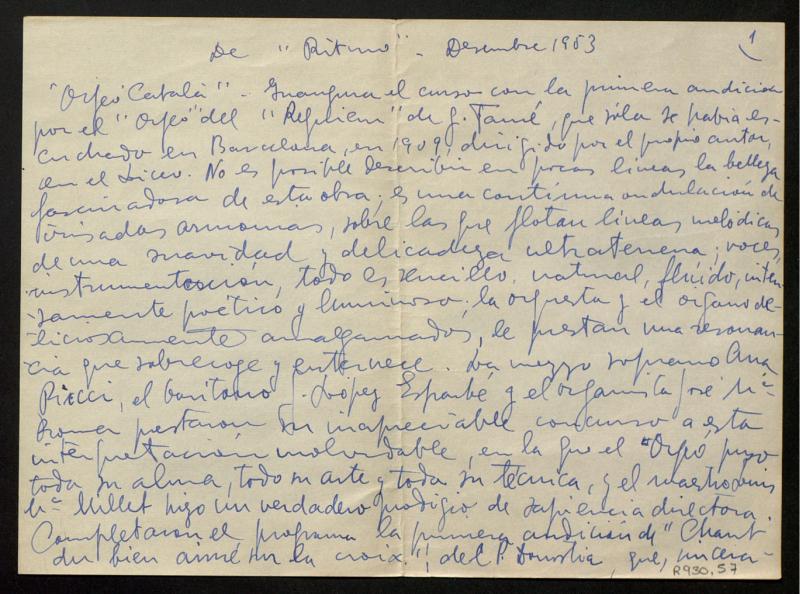 De "Ritmo" - Desembre 1953
1
"Orfeó Català" - Inaugura el curso con la primera audición
por el "Orfeó" del "Requiem" de G. Fauré, que sólo se había es-
cuchado en Barcelona, en 1909, dirigido por el propio autor,
en el Liceo. No es posible describir en pocas lineas la belleza
fascinadora de esta obra; es una contínua ondulación de
irisadas armonias, sobre las que flotan lineas melódicas
de una suavidad y delicadeza ultraterrena; voces,
instrumentación, todo es sencillo, natural, flúido, inten-
samente poético y luminoso; la orquesta y el organo de-
liciosamente amalgamados, le prestan una resonan-
cia que sobrecoge y enternece. La mezzo soprano Ana
Ricci, el baritono J. López Esparbé y el organista José Mª
Roma prestaron su inapreciable concurso a esta
interpretación inolvidable, en la que el "Orfeó" puso
toda su alma, todo su arte y toda su técnica, y el maestro Luis
Mª Millet hizo un verdadero prodigio de sapiencia directora.
Completaron el programa la primera audición de "Chant
du bien aimé sur la croix", del P. Donostia, que, sincera-
R930,57